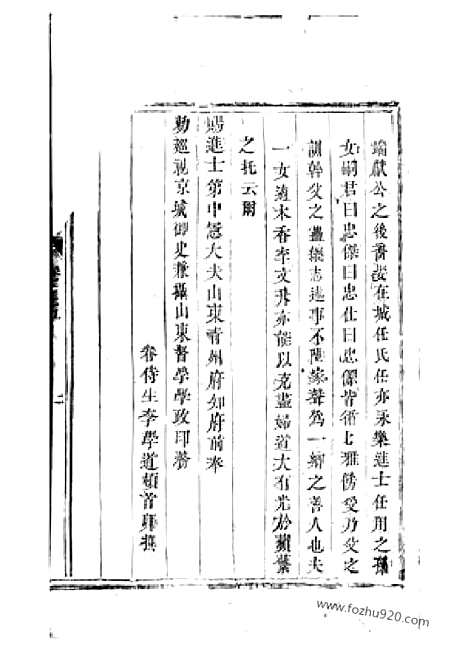 端獻公之後胥娶在城任氏任亦永樂進士任用之孫
女嗣君曰忠傑曰忠仕曰忠傑皆循七雅傍受乃父之
訓幹父之蠱繼志述事不墜家聲為一鄉之善人也夫
一女適木香李文升亦能以克盡婦道大有光於蘋蘩
之托云爾
賜進士第中憲大夫山東青州府知府前奉
勑巡視京城御史兼攝山東督學學政印務
眷侍生李學道頓首拜撰
二
https://www.fozhu920.com/